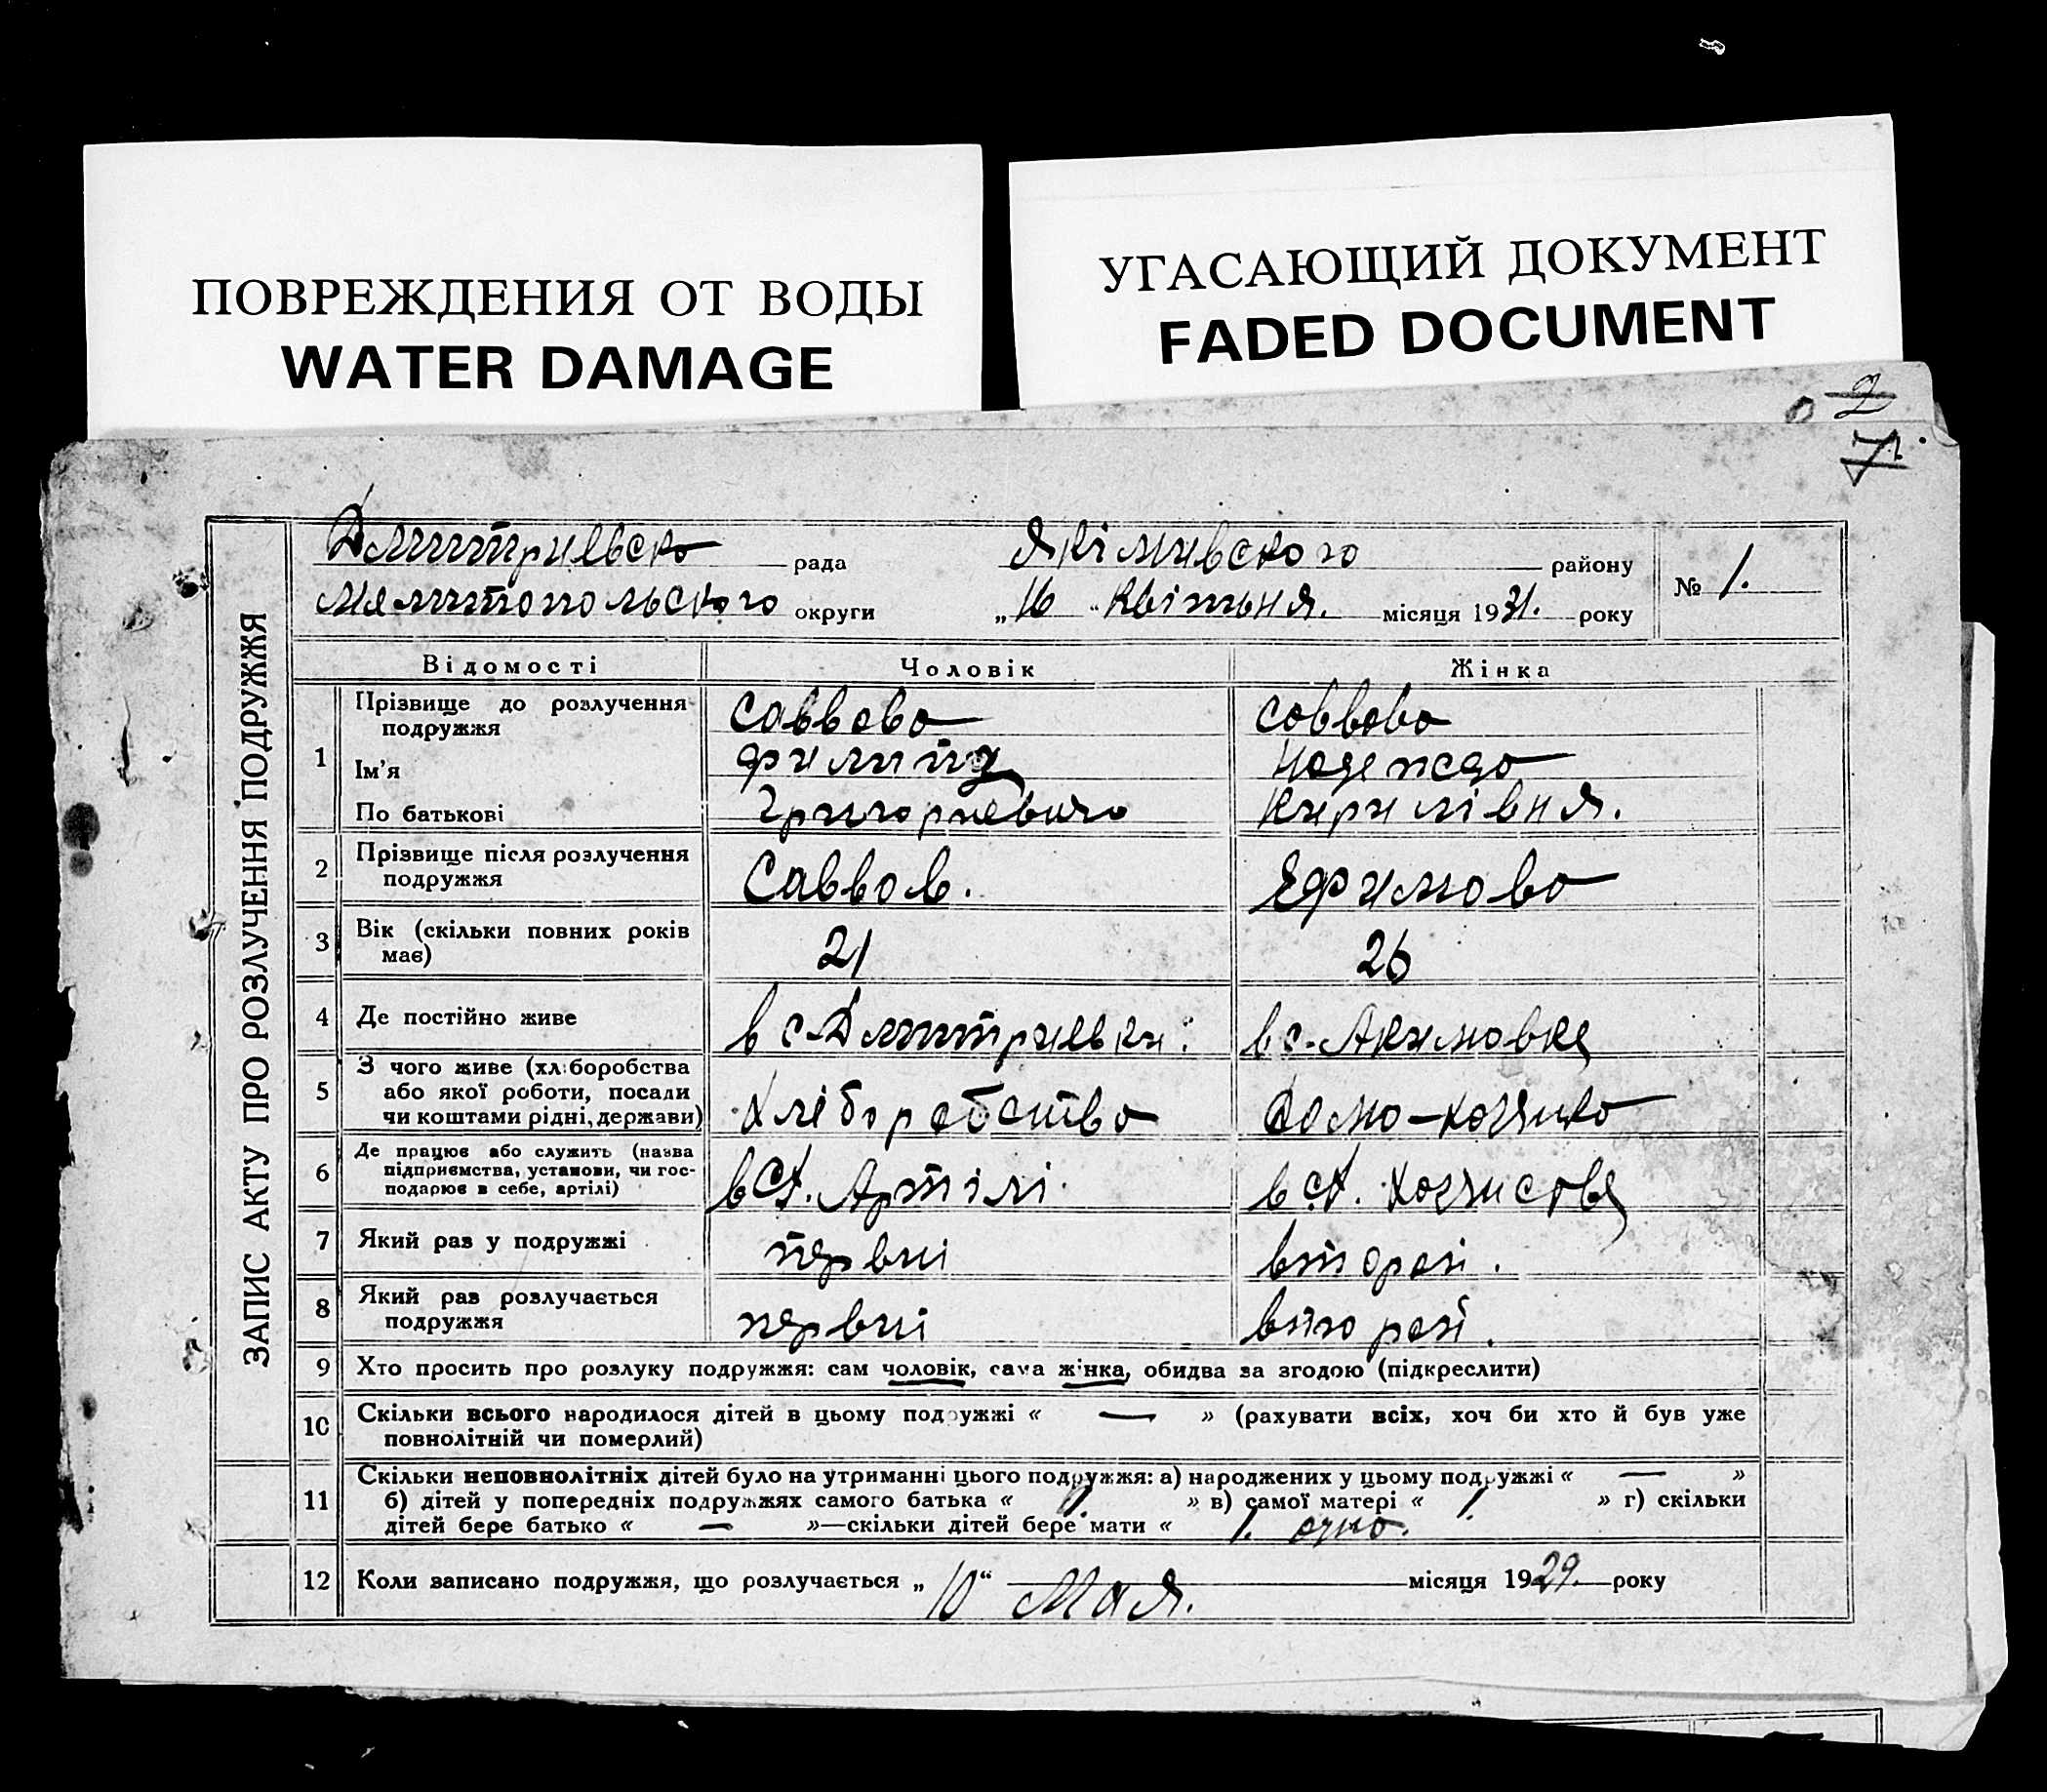 ПОВРЕЖДЕНИЯ ОТ ВОДЫ
WATER DAMAGE
УГАСАЮЩИЙ ДОКУМЕНТ
FADED DOCUMENT
2
71.
ЗАПИС АКТУ ПРО РОЗЛУЧЕННЯ ПОДРУЖЖЯ
Дмитриевска рада Якімивского району № 1.
Мелитопольского округи „16" Квітьня. місяця 1931. року
Відомості Чоловік Жінка
1 Прізвище до розлучення подружжя Саввова Саввова
Ім'я Филипа Надежда
По батькові Григориевича Кирилівня.
2 Прізвище після розлучення подружжя Саввов. Ефимова
3 Вік (скільки повних років має) 21 26
4 Де постійно живе в с. Дмитриевки. в с. Акимовке
5 З чого живе (хліборобства або якої роботи, посади чи коштами рідні, держави) Хліборобство Домо-хозяйка
6 Де працює або служить (назва підприємства, установи, чи господарює в себе, артілі) в СХ. Артілі в СХ. Хозяйстве
7 Який раз у подружжі первий второй.
8 Який раз розлучається подружжя первий второй.
9 Хто просить про розлуку подружжя: сам чоловік, сама жінка, обидва за згодою (підкреслити)
10 Скільки всього народилося дітей в цьому подружжі « — » (рахувати всіх, хоч би хто й був уже
повнолітній чи померлий)
11 Скільки неповнолітніх дітей було на утриманні цього подружжя: а) народжених у цьому подружжі « — »
б) дітей у попередніх подружжях самого батька « » в) самої матері « 1. » г) скільки
дітей бере батько « — »—скільки дітей бере мати « 1. одно.
12 Коли записано подружжя, що розлучається „10" Мая. місяця 1929. року